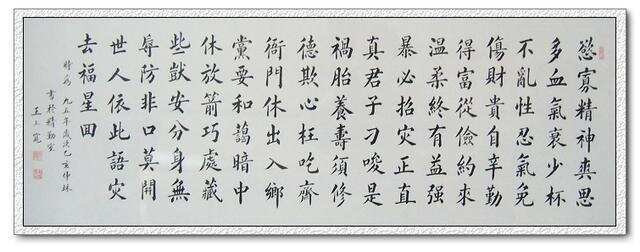 慾寡精神爽思
多血氣衰少杯
不亂性忍氣免
傷財貴自辛勤
得富從儉約來
溫柔終有益强
暴必招灾正直
真君子刁唆是
禍胎養壽須修
德欺心枉吃齊
衙門休出入鄉
黨要和藹暗中
休放箭巧處藏
些獃安分身無
辱防非口莫開
世人依此語灾
去福星囬
時為一九九五年歲次乙亥仲秋
書於
王上